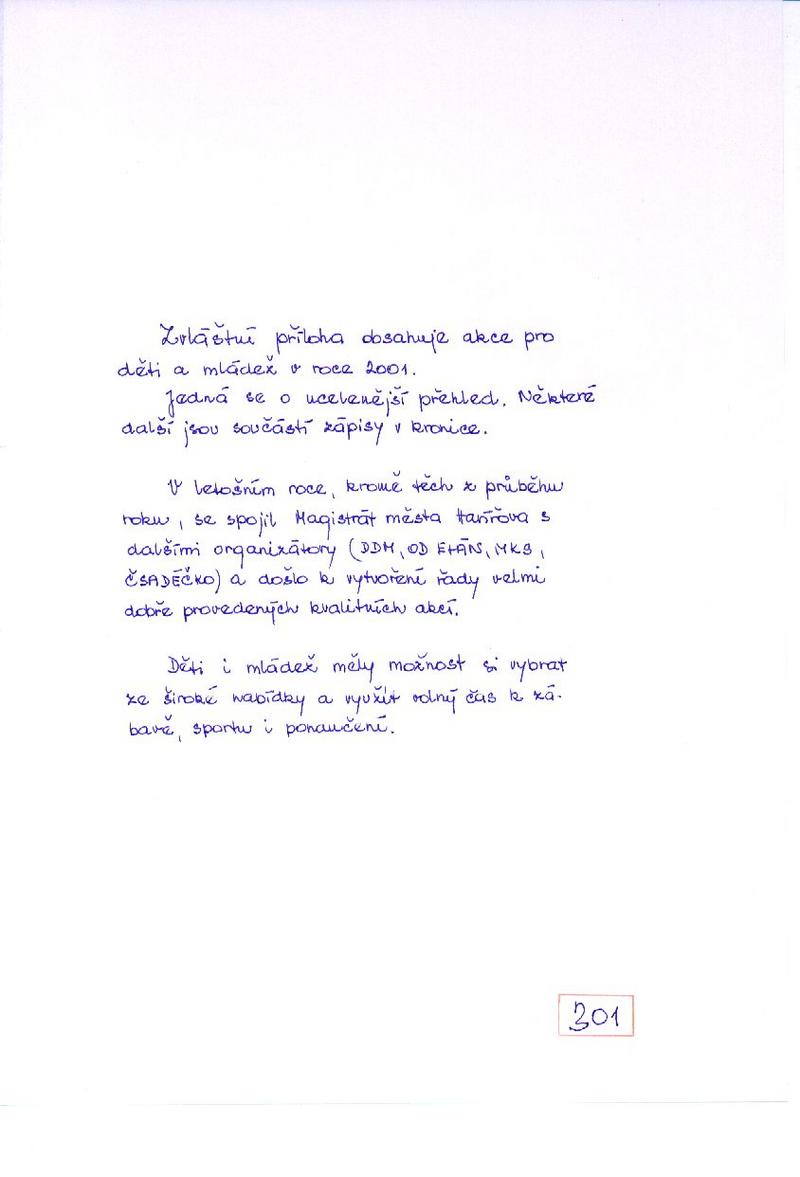 Zvláštní příloha obsahuje akce pro
děti a mládež v roce 2001.
Jedná se o ucelenější přehled. Některé
další jsou součástí zápisy v kronice.
V letošním roce, kromě těch z průběhu
roku, se spojil Magistrát města Havířova s
dalšími organizátory (DDM, OD ELÁN, MKS,
ČSADÉČKO) a došlo k vytvoření řady velmi
dobře provedených kvalitních akcí.
Děti i mládež měly možnost si vybrat
ze široké nabídky a využít volný čas k zá-
bavě, sportu i ponaučení.
301